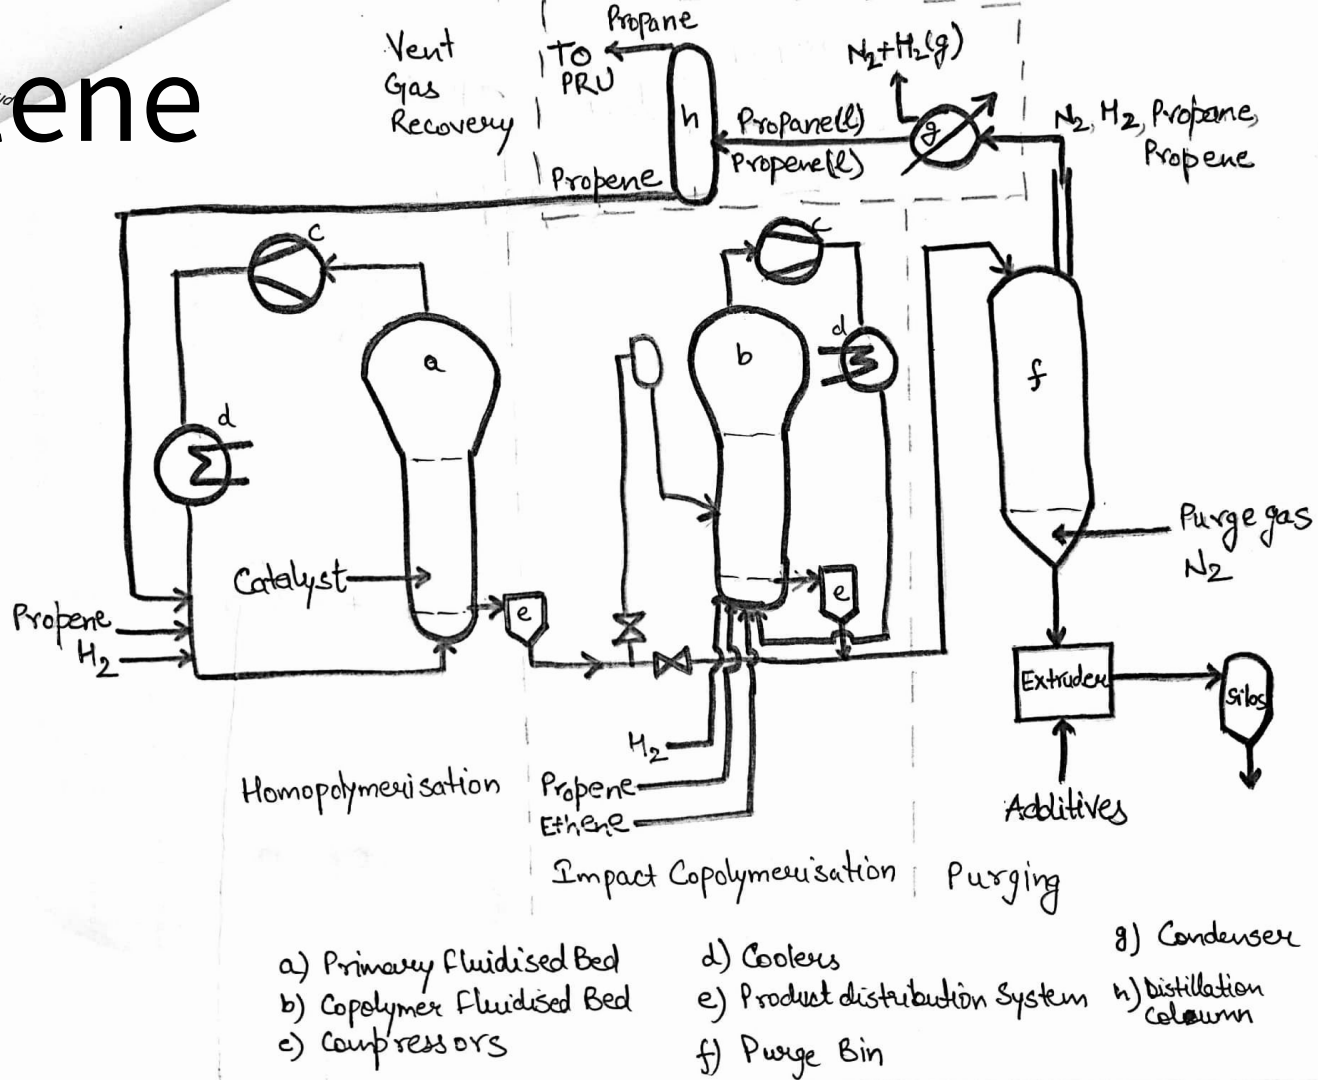 ene
Vent
Gas
Recovery
Propane
TO
PRU
h
Propane(l)
Propene(l)
Propene
N₂+H₂(g)
g
N₂, H₂, Propane,
Propene
c
a
d
Catalyst
Propene
H₂
e
c
b
d
e
f
Purge gas
N₂
Extruder
Silos
Additives
H₂
Propene
Ethene
Homopolymerisation
Impact Copolymerisation
Purging
a) Primary Fluidised Bed
b) Copolymer Fluidised Bed
c) Compressors
d) Coolers
e) Product distribution System
f) Purge Bin
g) Condenser
h) Distillation
Coloumn